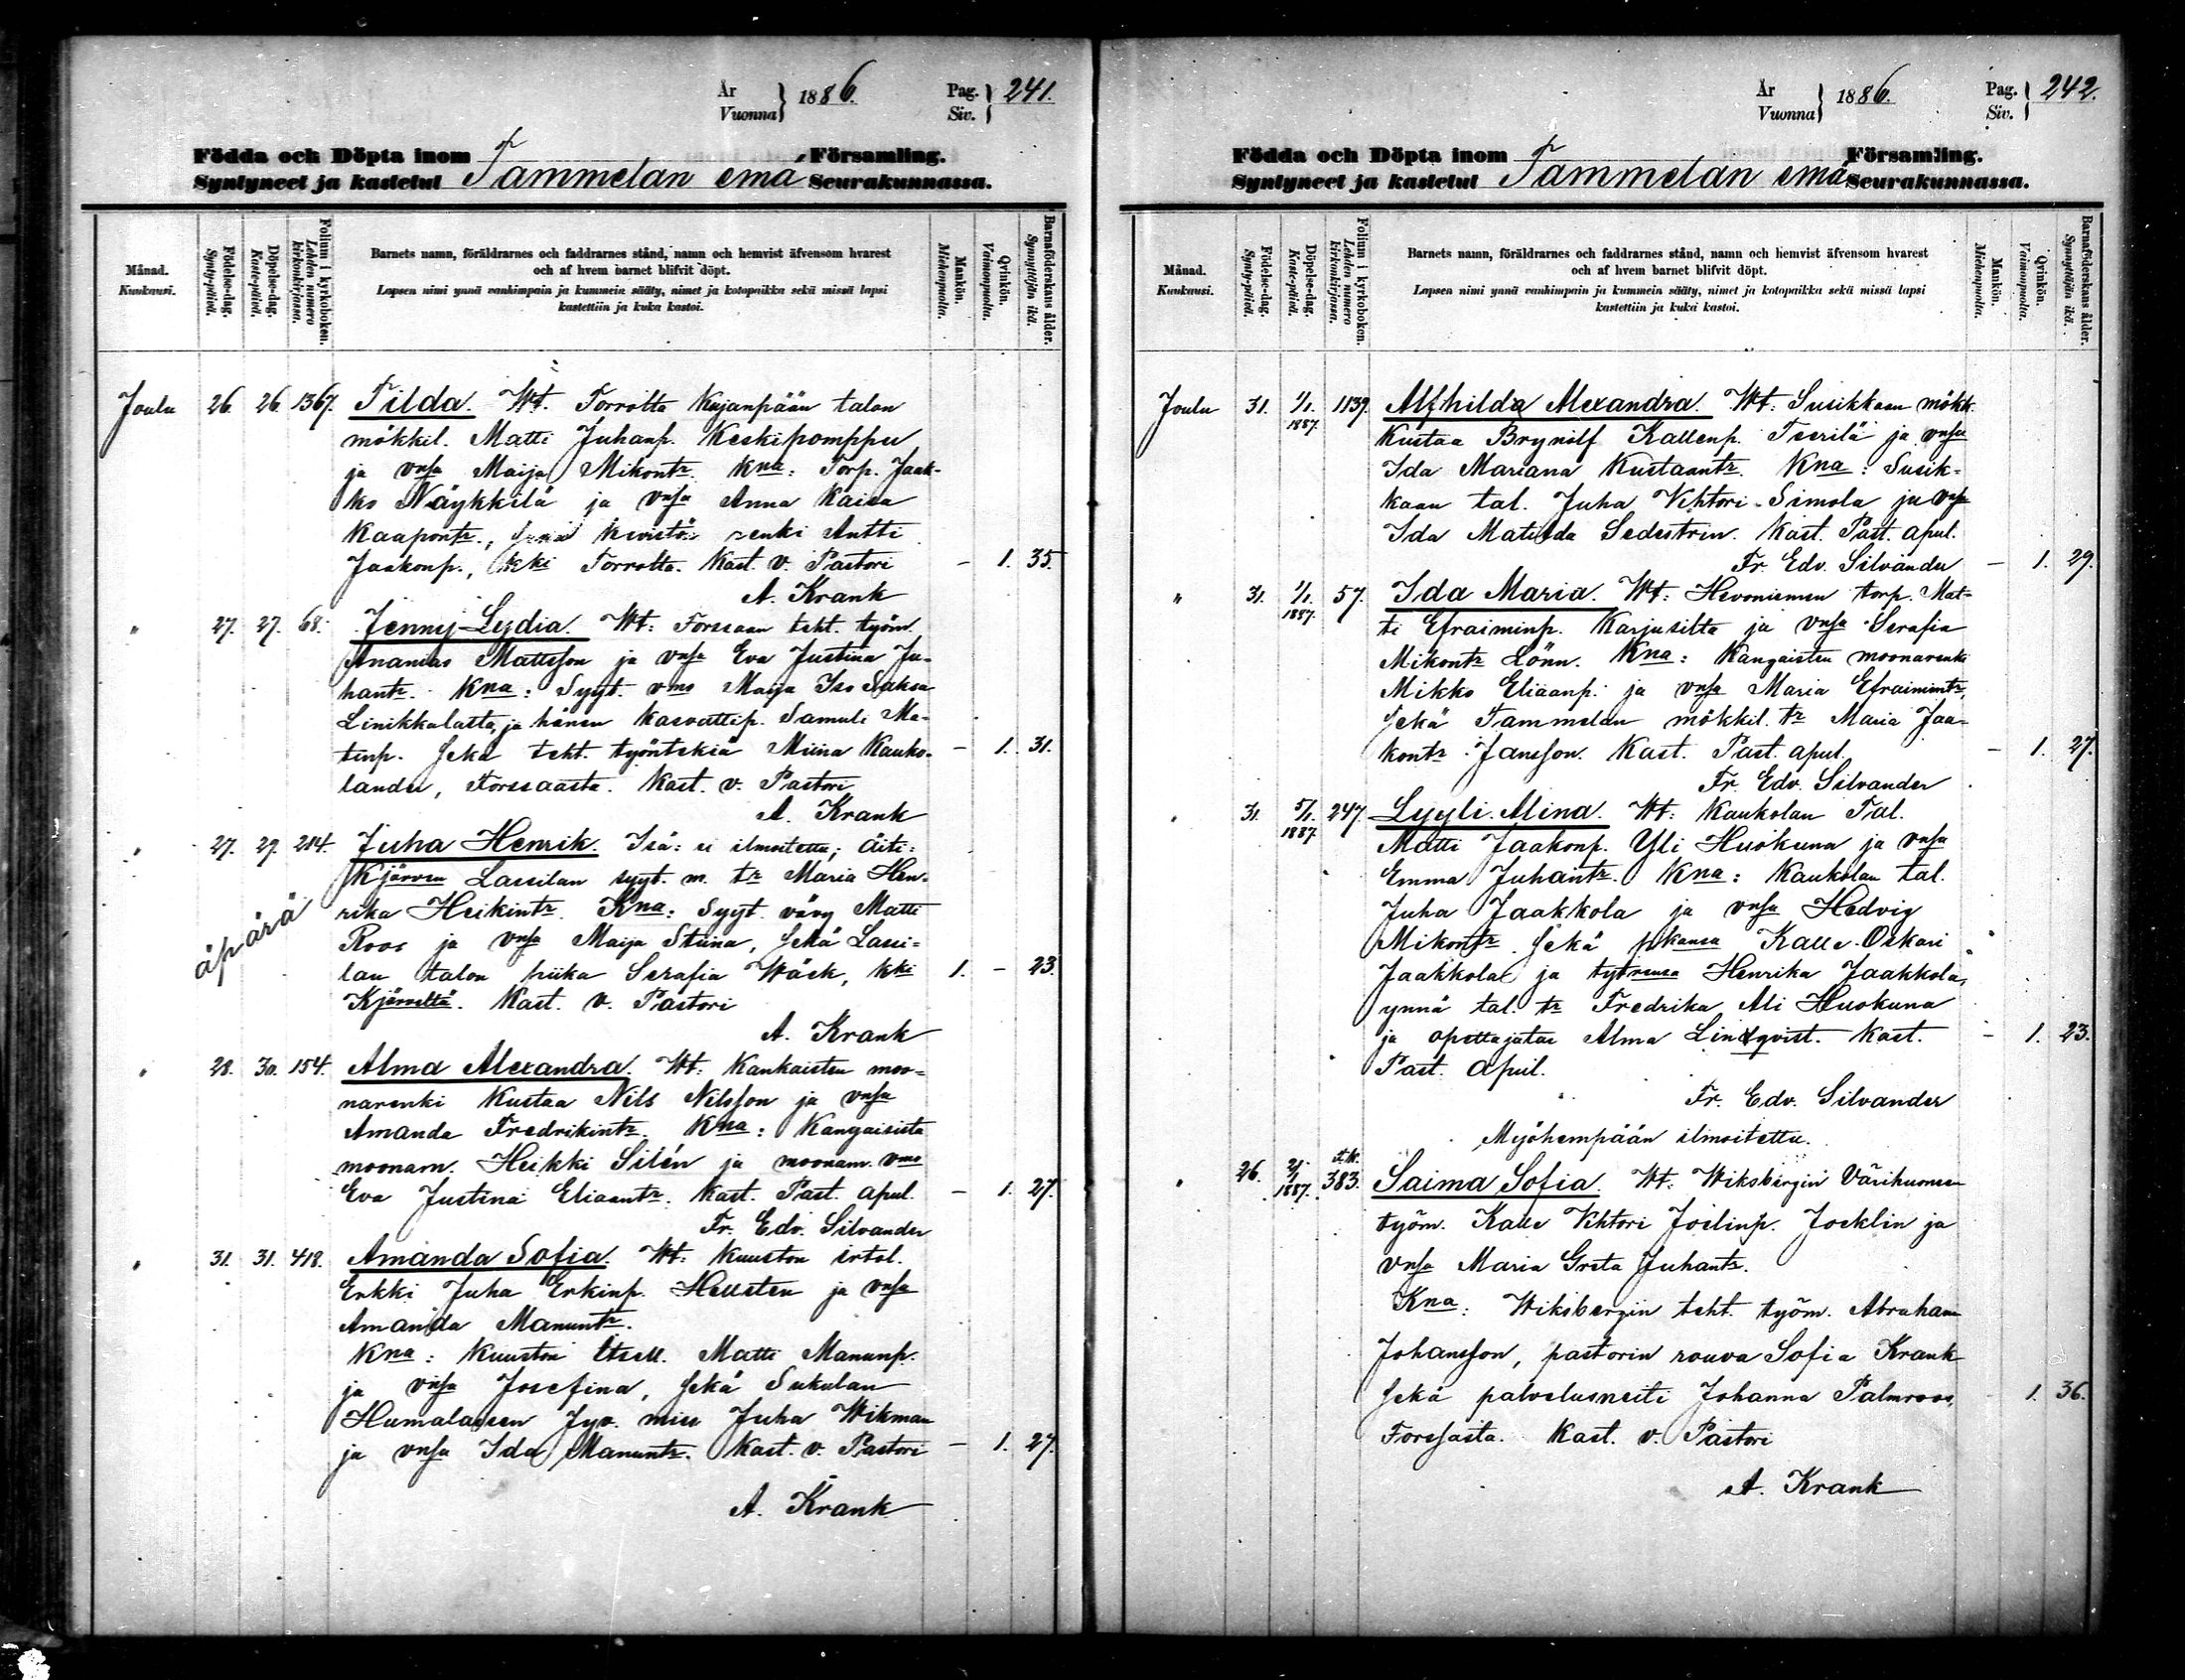 År
Vuonna } 1886.
Pag.
Siv. } 241.
Födda och Döpta inom
Syntyneet ja kastetut Tammelan emä
Församling.
Seurakunnassa.
Månad.
Kuukausi.
Födelse-dag.
Synty-päivä.
Döpelse-dag.
Kaste-päivä.
Folium i kyrkoboken.
Lehden numero kirkonkirjassa.
Barnets namn, föräldrarnes och faddrarnes stånd, namn och hemvist äfvensom hvarest
och af hvem barnet blifvit döpt.
Lapsen nimi ynnä vanhimpain ja kummein sääty, nimet ja kotopaikka sekä missä lapsi
kastettiin ja kuka kastoi.
Mankön.
Miehenpuolia.
Qvinkön.
Vaimonpuolia.
Barnaföderskans ålder.
Synnyttäjän ikä.
Joulu 26. 26. 1367. Tilda. Wt. Torrolta Kujanpään talon
mökkil. Matti Juhanp. Keskipomppu
ja vnsa Maija Mikontr. Kna: Torp. Jaak-
ko Näykkilä ja vnsa Anna Kaisa
Kaapontr., renki Antti
Jaakonp., kki Torrolta. Kast. v. Pastori - 1. 35.
A. Krank
" 27. 27. 68. Jenny Lydia. Wt: Forssaan teht. työm.
Ananias Mattsson ja vnsa Eva Justina Ju-
hantr. Kna: Syyt. vmo Maija Iso Saksa
Linikkalasta, ja hänen kasvattip. Samuli Ma-
tinp. sekä teht. työntekiä Miina Kauko- - 1. 31.
lander, Forssaasta. Kast. v. Pastori
A. Krank
" 27. 29. 214. Juha Henrik. Isä: ei ilmoitettu; äiti:
Kjärven Lassilan syyt. m. tr Maria Hen-
rika Heikintr. Kna: Syyt. vävy Matti
äpärä
Roos ja vnsa Maija Stiina, sekä Lassi-
lan talon piika Serafia Wäck, kki 1. - 23.
Kjärveltä. Kast. v. Pastori
A. Krank
" 28. 30. 154. Alma Alexandra. Wt: Kankaisten moo-
narenki Kustaa Nils Nilsson ja vnsa
Amanda Fredrikintr. Kna: Kangaisista
moonam. Heikki Silén ja moonam. vmo
Eva Justina Eliaantr. Kast. Past. apul. - 1. 27.
Fr. Edv. Silvander
" 31. 31. 418. Amanda Sofia. Wt: Kuuston irtol.
Erkki Juha Erkinp. Hellsten ja vnsa
Amanda Manuntr.
Kna: Kuuston itsell. Matti Manunp.
ja vnsa Josefina, sekä Sukulan
Humalaisen Jyv. mies Juha Wikman
ja vnsa Ida Manuntr. Kast. v. Pastori - 1. 27.
A. Krank
År
Vuonna } 1886.
Pag.
Siv. } 242.
Födda och Döpta inom
Syntyneet ja kastetut Tammelan emä
Församling.
Seurakunnassa.
Månad.
Kuukausi.
Födelse-dag.
Synty-päivä.
Döpelse-dag.
Kaste-päivä.
Folium i kyrkoboken.
Lehden numero kirkonkirjassa.
Barnets namn, föräldrarnes och faddrarnes stånd, namn och hemvist äfvensom hvarest
och af hvem barnet blifvit döpt.
Lapsen nimi ynnä vanhimpain ja kummein sääty, nimet ja kotopaikka sekä missä lapsi
kastettiin ja kuka kastoi.
Mankön.
Miehenpuolia.
Qvinkön.
Vaimonpuolia.
Barnaföderskans ålder.
Synnyttäjän ikä.
Joulu 31. 1/1. 1887. 1139. Alfhilda Alexandra. Wt: Susikkaan mökk.
Kustaa Brynolf Kallenp. Teerilä ja vnsa
Ida Mariana Kustaantr. Kna: Susik-
kaan tal. Juha Vihtori Simola ja vnsa
Ida Matilda Sedestrin. Kast. Past. apul.
Fr. Edv. Silvander - 1. 29.
" 31. 1/1. 1887. 57. Ida Maria. Wt: Hevoniemen torp. Mat-
ti Efraiminp. Karjusilta ja vnsa Serafia
Mikontr Lönn. Kna: Kangaisten moonarenki
Mikko Eliaanp. ja vnsa Maria Efraimintr,
sekä Tammelan mökkil. tr Maria Jaa-
kontr Jansson. Kast. Past. apul. - 1. 27.
Fr. Edv. Silvander
" 31. 5/1. 1887. 247. Lyyli Mina. Wt: Kaukolan Tal.
Matti Jaakonp. Yli Huokuna ja vnsa
Emma Juhantr. Kna: Kaukolan tal.
Juha Jaakkola ja vnsa Hedvig
Mikontr sekä pkansa Kalle Oskari
Jaakkola ja tytrensa Henrika Jaakkola,
ynnä tal. tr Fredrika Ali Huokuna
ja opettajatar Alma Lindqvist. Kast. - 1. 23.
Past. apul.
Fr. Edv. Silvander
Myöhempään ilmoitettu.
" 26. 2/1 1887. 383. Saima Sofia. Wt: Wiksbergin Värihuoneen
työm. Kalle Vihtori Joelinp. Jocklin ja
vnsa Maria Greta Juhantr.
Kna: Wiksbergin teht. työm. Abraham
Johansson, pastorin rouva Sofia Krank
sekä palvelusneiti Johanna Palmroos, 1. 36.
Forssasta. Kast. v. Pastori
A. Krank